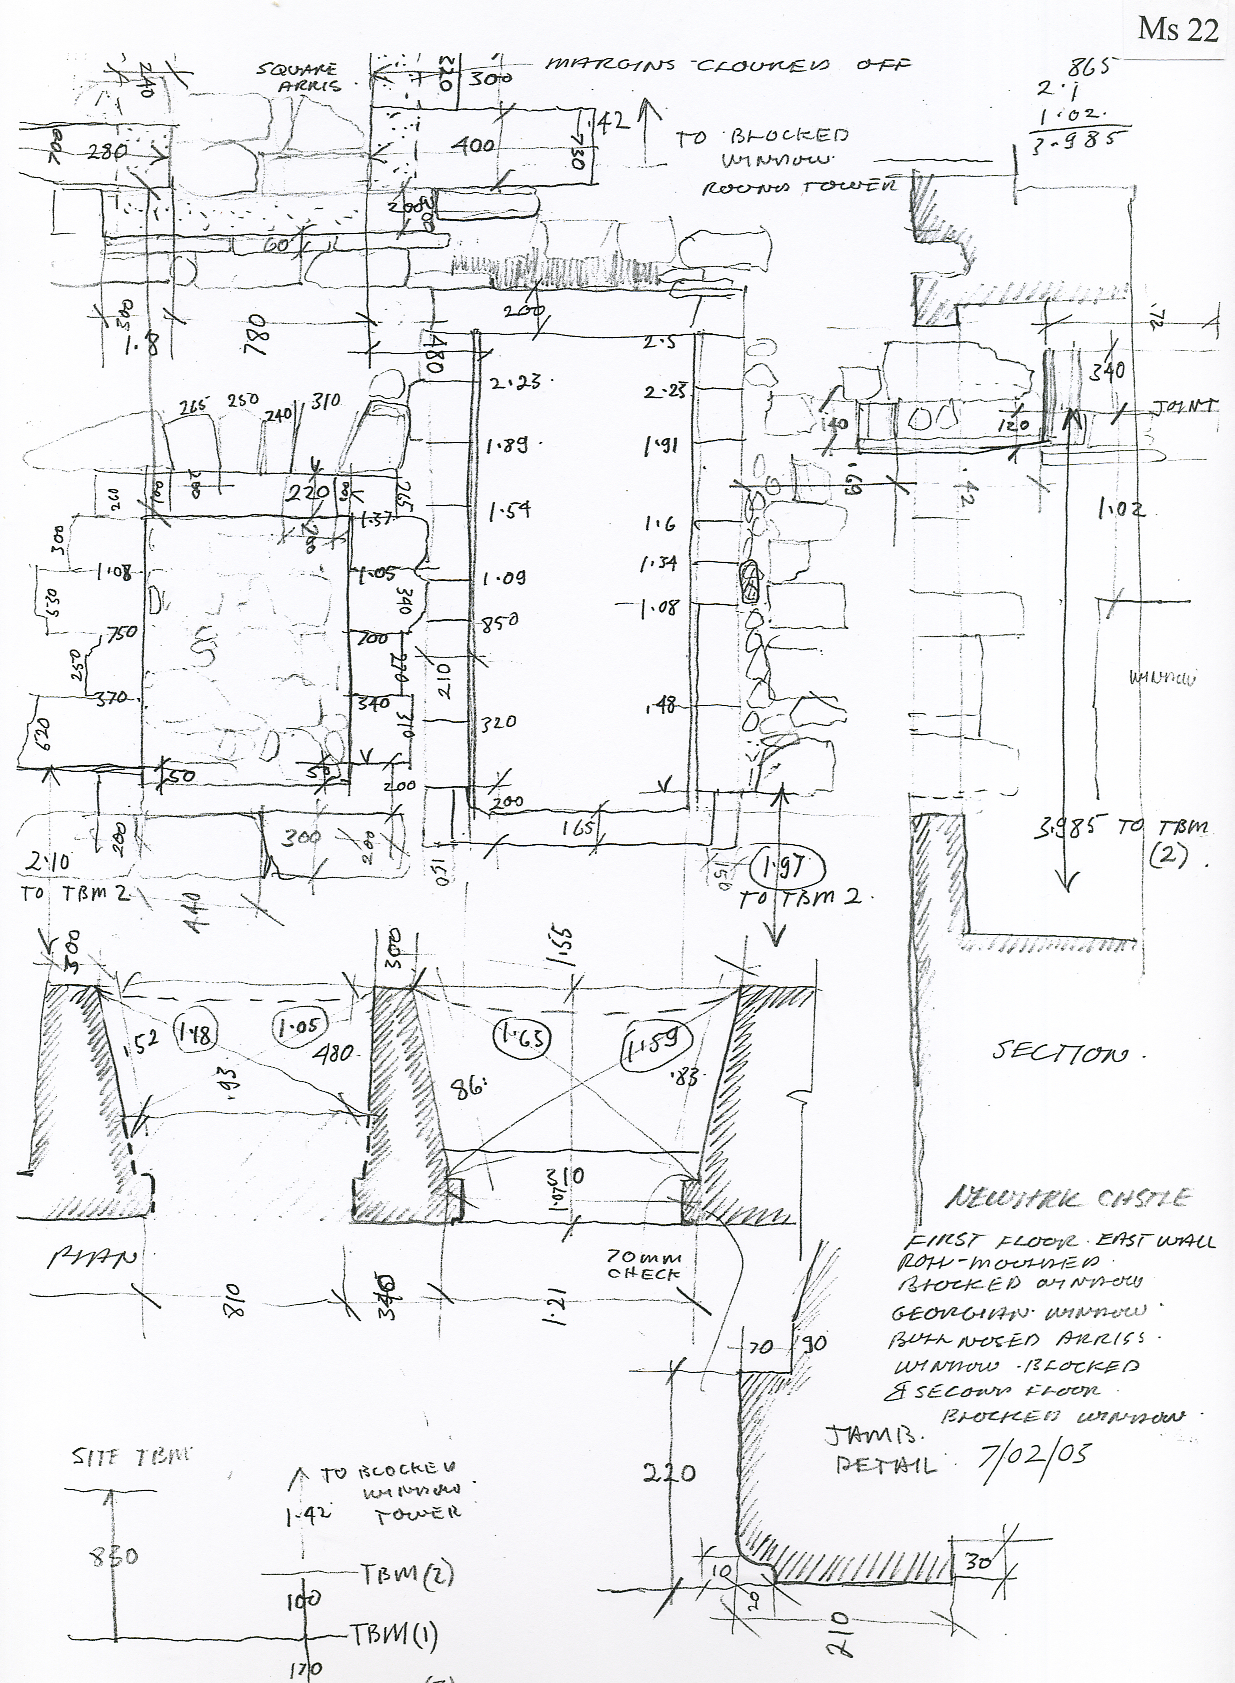 Ms 22
240
SQUARE
ARRIS
220
300
MARGINS CLOURED OFF
865
2.1
1.02.
3.985
200
280
400
730
.42
TO BLOCKED
WINDOW
ROUND TOWER
200
60
300
1.80
780
480
200
2.5
2.23
2.23
.72
340
JOINT
265
250
240
310
1.89
1.91
140
120
.69
.42
1.02
260
200
220
265
1.37
1.54
1.6
300
1.08
1.05
1.09
1.34
340
1.08
750
200
850
250
210
370
340
.48
WINDOW
620
310
320
50
50
200
200
165
200
300
200
150
150
3.985 TO TBM
(2).
2.10
TO TBM 2
440
1.97
TO TBM 2.
300
300
1.55
.52
1.18
1.05
480
.93
1.63
1.59
86
.83
310
1.07
SECTION.
PLAN
70MM
CHECK
810
1.21
NEWARK CASTLE
FIRST FLOOR. EAST WALL
ROLL-MOULDED
BLOCKED WINDOW
GEORGIAN WINDOW
BULL NOSED ARRISS.
WINDOW BLOCKED
& SECOND FLOOR
BLOCKED WINDOW.
7/02/03
70
90
JAMB.
DETAIL
220
10
20
30
210
SITE TBM
850
TO BLOCKED
WINDOW
1.42 TOWER
TBM(2)
100
TBM(1)
170